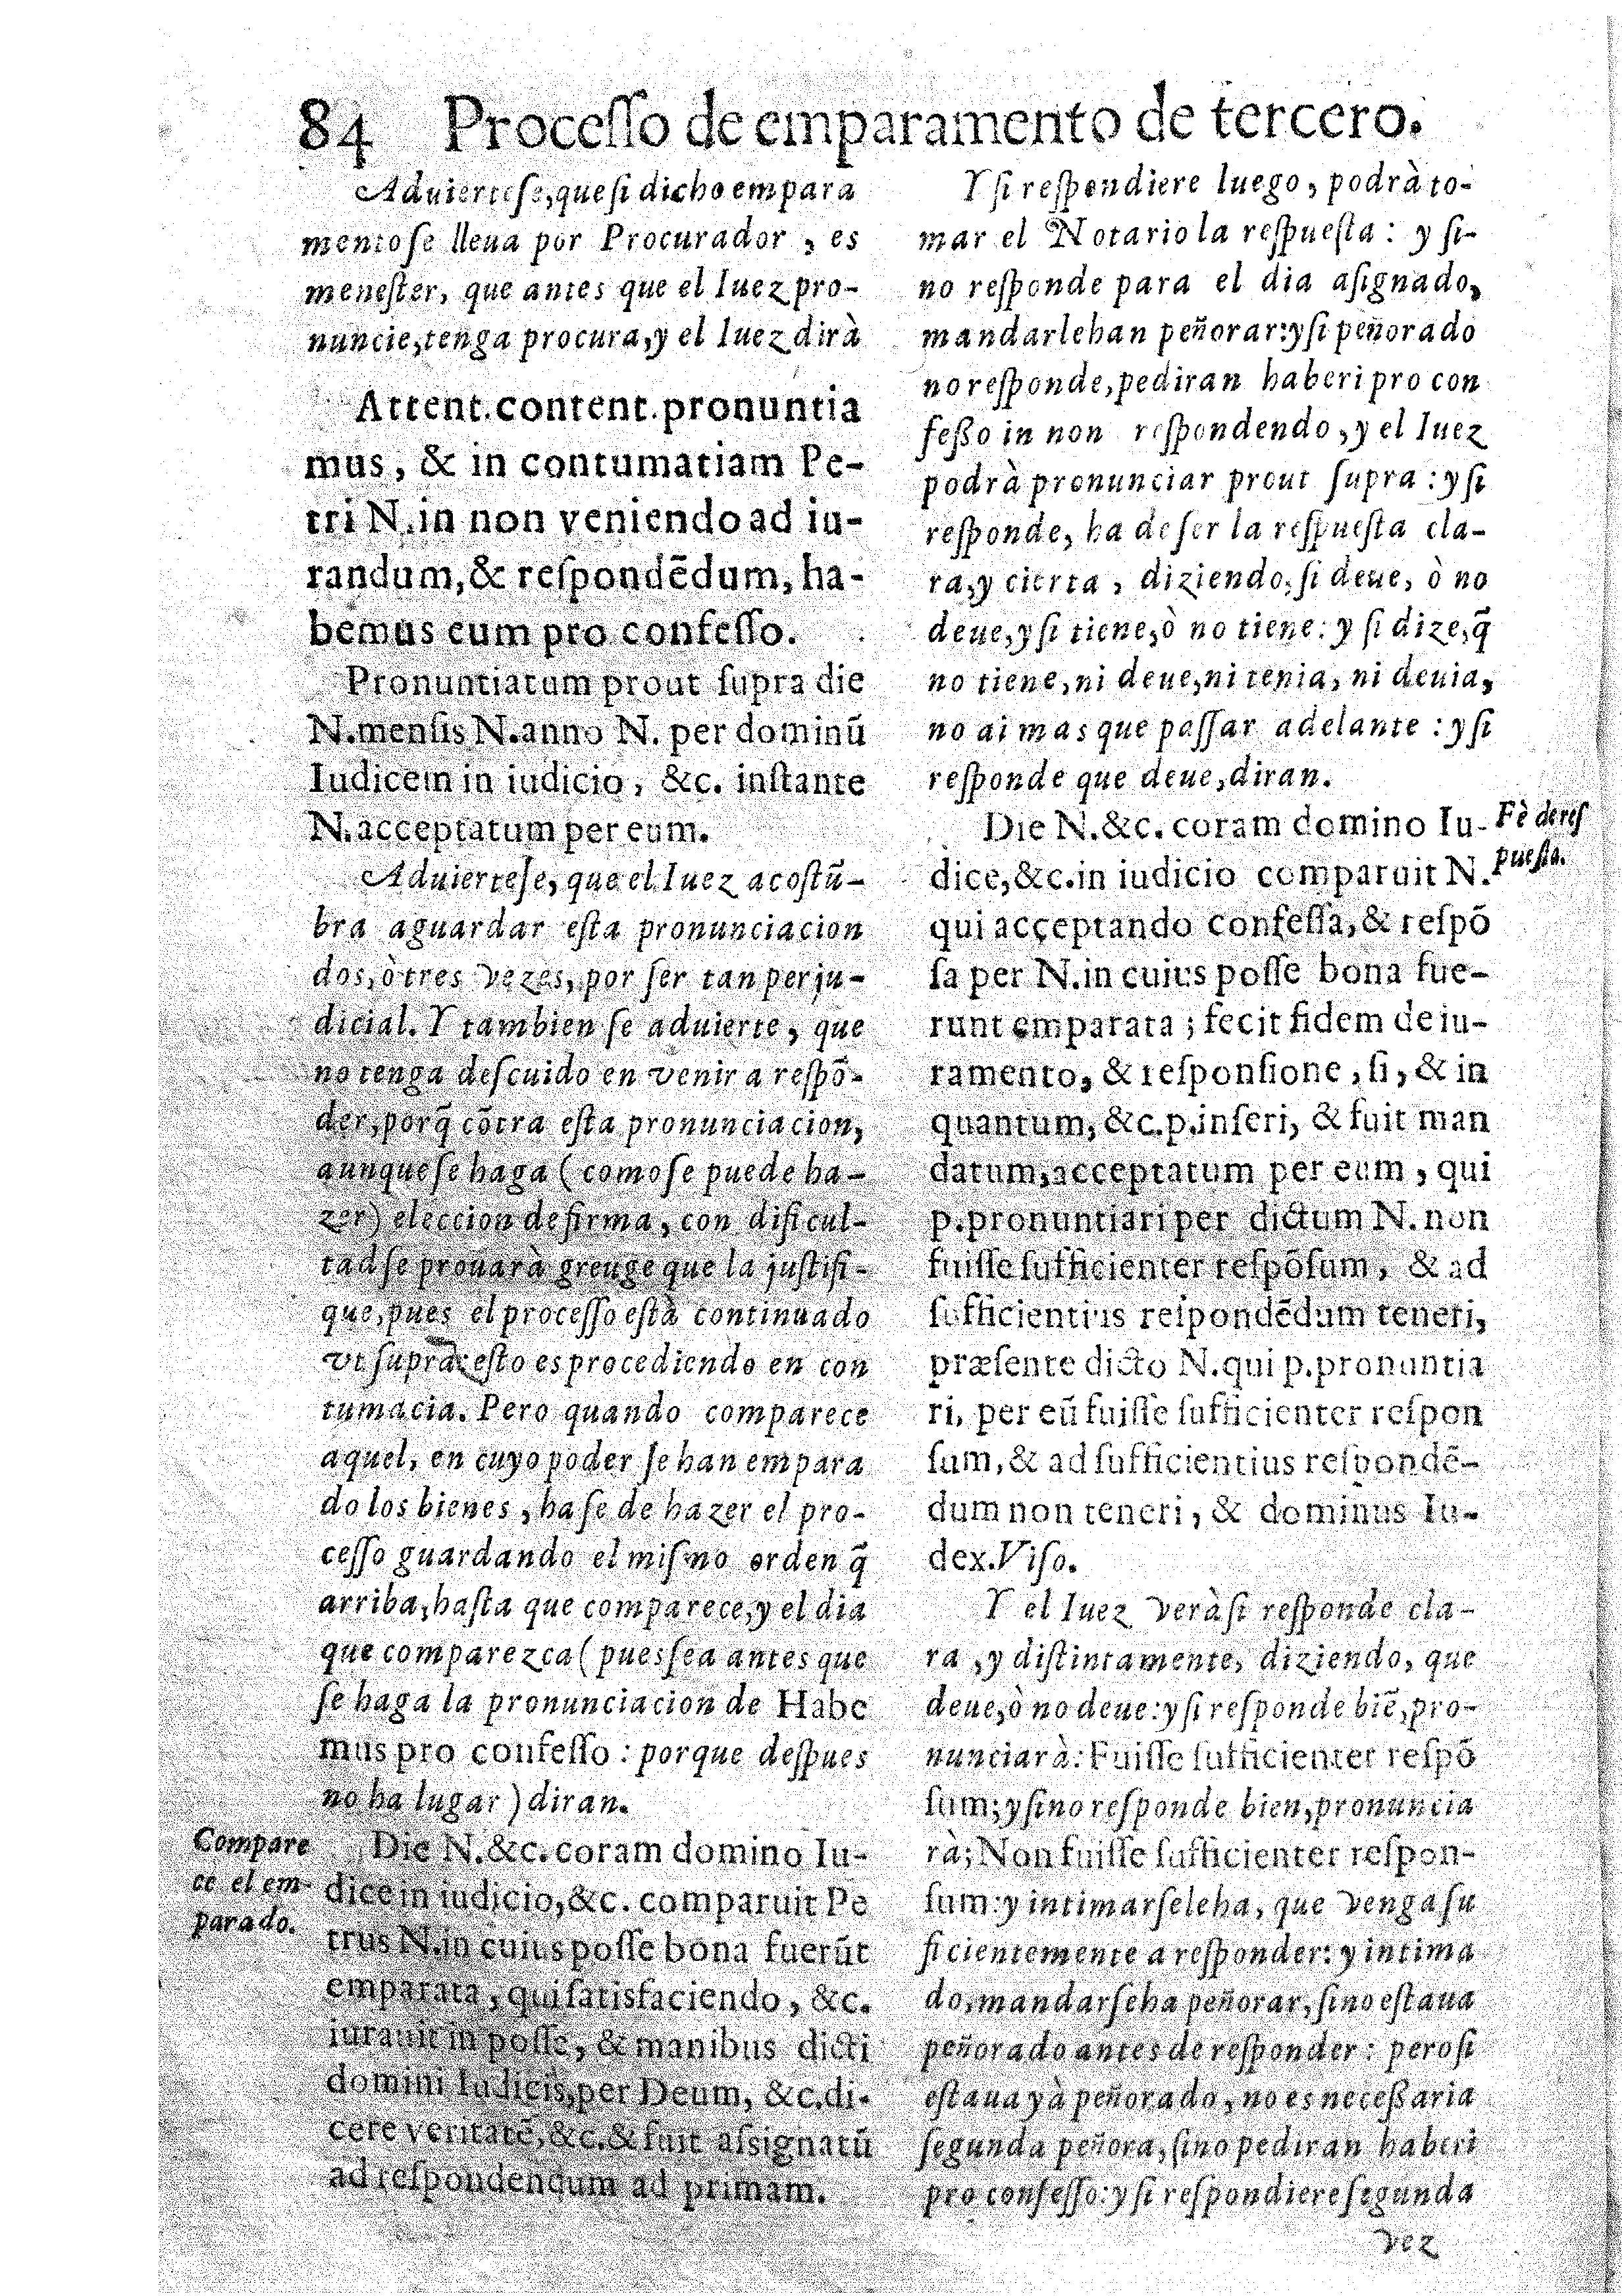 84 Proceſſo de emparamento de tercero.
Aduierteſe, que ſi dicho empara
mento ſe lleua por Procurador, es
meneſter, que antes que el Iuez pro-
nuncie, tenga procura, y el Iuez dirà
Attent. content. pronuntia
mus, & in contumatiam Pe-
tri N. in non veniendo ad iu-
randum, & reſpondẽdum, ha-
bemus eum pro confeſſo.
Pronuntiatum prout ſupra die
N. menſis N. anno N. per dominũ
Iudicem in iudicio, &c. inſtante
N. acceptatum per eum.
Aduierteſe, que el Iuez acoſtũ-
bra aguardar eſta pronunciacion
dos, ò tres vezes, por ſer tan perju-
dicial. Y tambien ſe aduierte, que
no tenga deſcuido en venir a reſpõ-
der, porq̃ cõtra eſta pronunciacion,
aunque ſe haga (como ſe puede ha-
zer) eleccion de firma, con dificul-
tad ſe prouarà greuge que la juſtifi-
que, pues el proceſſo eſtà continuado
vt ſupra: eſto es procediendo en con
tumacia. Pero quando comparece
aquel, en cuyo poder ſe han empara
do los bienes, haſe de hazer el pro-
ceſſo guardando el miſmo orden q̃
arriba, haſta que comparece, y el dia
que comparezca (pues ſea antes que
ſe haga la pronunciacion de Habe
mus pro confeſſo: porque deſpues
no ha lugar) diran.
Compare
ce el em-
parado.
Die N. &c. coram domino Iu-
dice in iudicio, &c. comparuit Pe
trus N. in cuius poſſe bona fuerũt
emparata, qui ſatisfaciendo, &c.
iurauit in poſſe, & manibus dicti
domini Iudicis, per Deum, &c. di-
cere veritatẽ, &c. & fuit aſsignatũ
ad reſpondendum ad primam.
Y ſi reſpondiere luego, podrà to-
mar el Notario la reſpueſta: y ſi-
no reſponde para el dia aſignado,
mandarlehan peñorar: y ſi peñorado
no reſponde, pediran haberi pro con
feßo in non reſpondendo, y el Iuez
podrà pronunciar prout ſupra: y ſi
reſponde, ha de ſer la reſpueſta cla-
ra, y cierta, diziendo, ſi deue, ò no
deue, y ſi tiene, ò no tiene: y ſi dize, q̃
no tiene, ni deue, ni tenia, ni deuia,
no ai mas que paſſar adelante: y ſi
reſponde que deue, diran.
Fè de reſ
pueſta.
Die N. &c. coram domino Iu-
dice, &c. in iudicio comparuit N.
qui acçeptando confeſſa, & reſpõ
ſa per N. in cuius poſſe bona fue-
runt emparata; fecit fidem de iu-
ramento, & reſponſione, ſi, & in
quantum, &c. p. inſeri, & fuit man
datum, acceptatum per eum, qui
p. pronuntiari per dictum N. non
fuiſſe ſufficienter reſpõſum, & ad
ſufficientius reſpondẽdum teneri,
præſente dicto N. qui p. pronuntia
ri, per eũ fuiſſe ſufficienter reſpon
ſum, & ad ſufficientius reſpondẽ-
dum non teneri, & dominus Iu-
dex. Viſo.
Y el Iuez verà ſi reſponde cla-
ra, y diſtintamente, diziendo, que
deue, ò no deue: y ſi reſponde biẽ, pro-
nunciarà: Fuiſſe ſufficienter reſpõ
ſum; y ſino reſponde bien, pronuncia
rà; Non fuiſſe ſufficienter reſpon-
ſum: y intimarſeleha, que venga ſu
ficientemente a reſponder: y intima
do, mandarſeha peñorar, ſino eſtaua
peñorado antes de reſponder: pero ſi
eſtaua yà peñorado, no es neceßaria
ſegunda peñora, ſino pediran haberi
pro confeſſo: y ſi reſpondiere ſegunda
vez